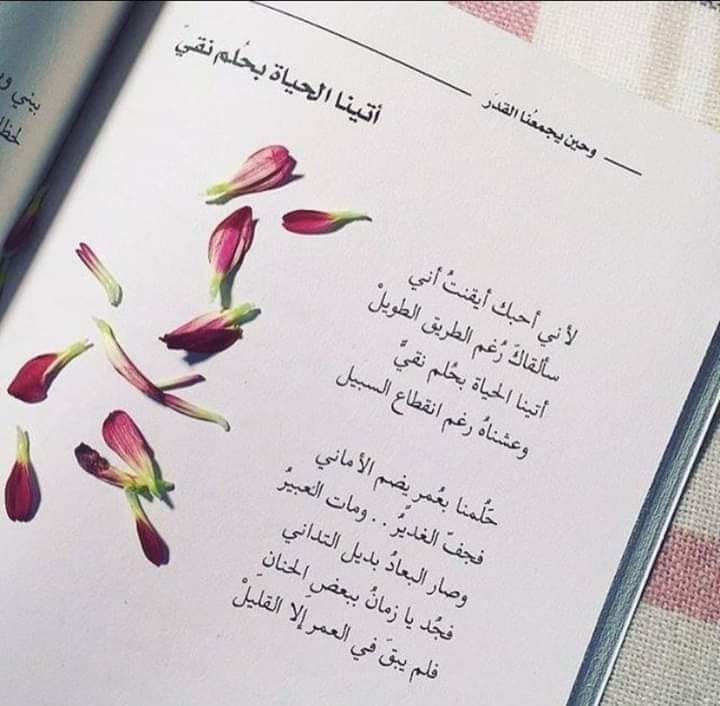 وحين يجمعُنا القدَر
أتينا الحياة بحُلم نقيّ
لأني أحبك أيقنتُ أني
سألقاكَ رُغم الطريق الطويلْ
أتينا الحياة بحُلم نقيٌّ
وعشناهُ رغم انقطاع السبيل
حَلُمنا بعُمر يضم الأماني
فجفّ الغديرُ .. ومات العبيرُ
وصار البعادُ بديل التداني
فجُد يا زمانُ ببعضِ الحنانِ
فلم يبقَ في العمر إلا القليلْ
بيني و
لحظا